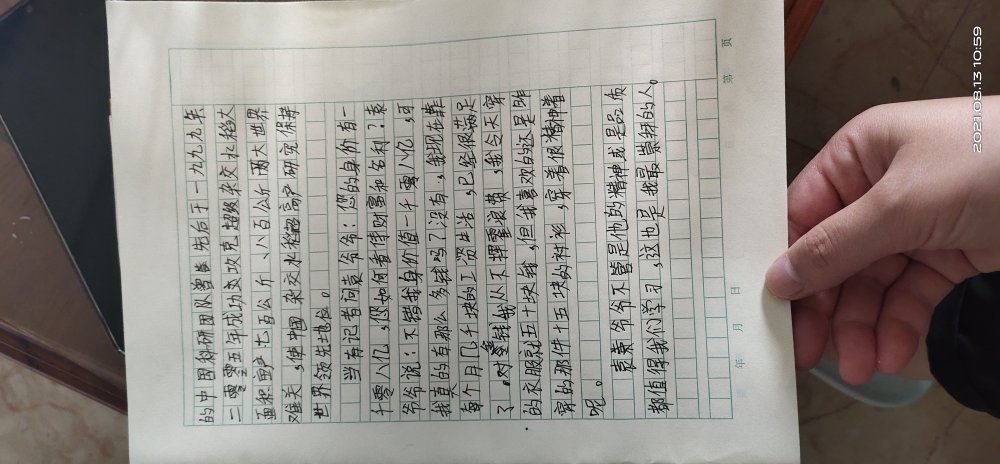 的中国科研团队曾先后于一九九九年
二零零五年成功攻克超级杂交水稻大
面积亩产七百公斤、八百公斤两大世界
难关，使中国杂交水稻超高产研究保持
世界领先地位。
当有记者问袁爷爷：您的身价有一
千零八亿，您如何看待财富和名利？袁
爷爷说：不错我身价值一千零八亿，可
我真的有那么多钱吗？没有，我现在靠
每个月几千块的工资生活，已经很满足
了。对金钱我从不挥霍浪费，我今天穿
的衣服就五十块钱，但我喜欢的还是昨
穿的那件十五块的衬衫，穿着很精神着
呢。
袁爷爷不管是他的精神或是品质
都值得我们学习，这也是我最崇拜的人。
第 页
年 月 日
2021.08.13 10:59